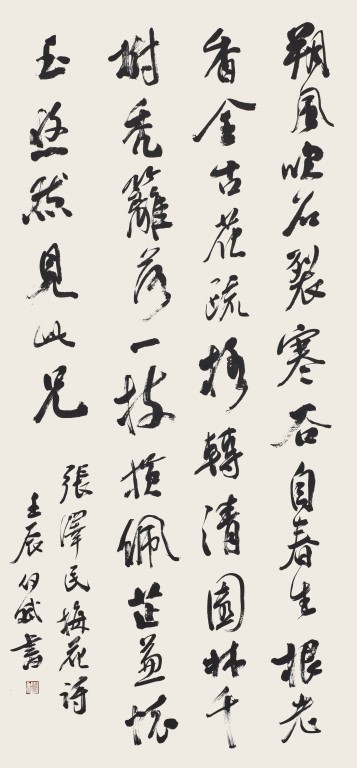 朔風吹石裂寒谷自春生根老
香全古花疏格轉清園林千
樹禿籬落一枝橫佩芷兼懷
玉悠然見此兄
張澤民梅花詩
壬辰書